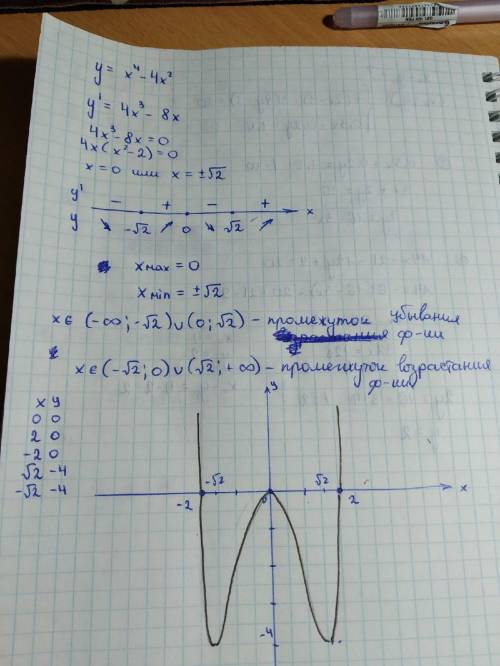 y = x⁴ - 4x²
y' = 4x³ - 8x
4x³ - 8x = 0
4x(x² - 2) = 0
x = 0 или x = ±√2
y' - + - +
y -√2 0 √2 x
xmax = 0
xmin = ±√2
x ∈ (-∞; -√2) ∪ (0; √2) - промежуток убывания
ф-ии
x ∈ (-√2; 0) ∪ (√2; +∞) - промежуток возрастания
ф-ии
x y
0 0
2 0
-2 0
√2 -4
-√2 -4
y
-√2 √2
-2 0 2 x
-4